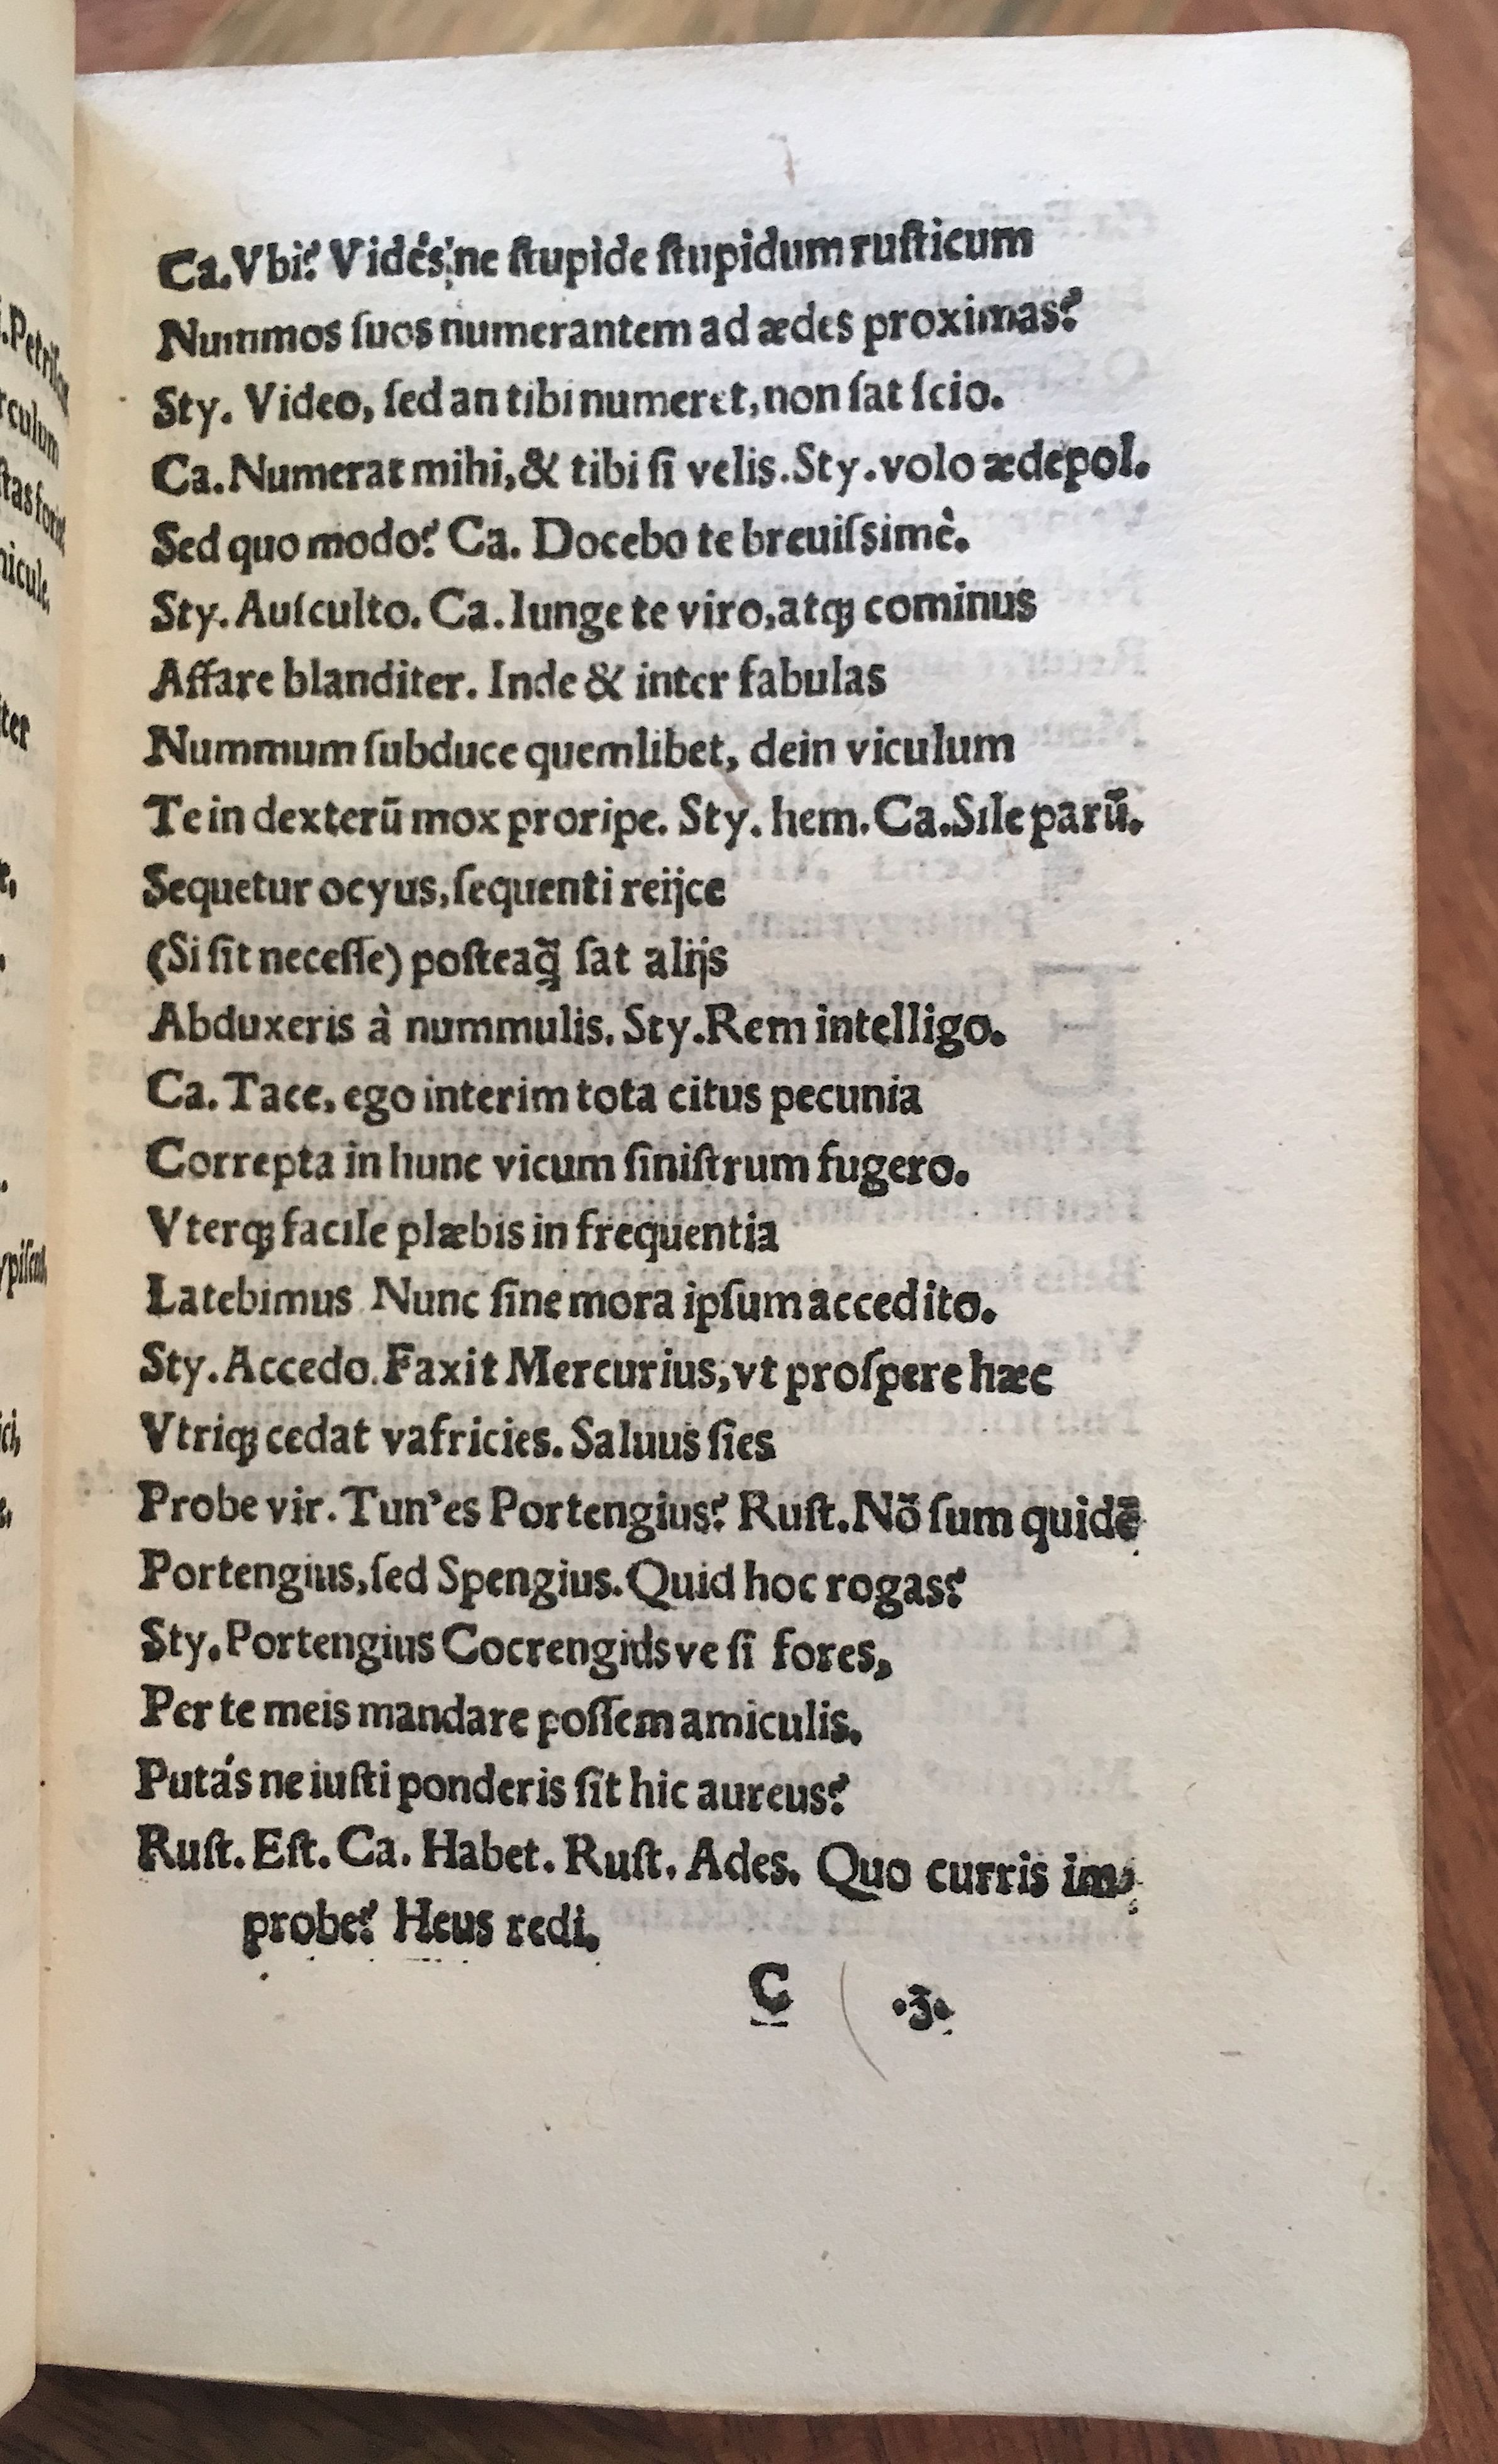 Ca. Vbi? Vidés'ne ſtupide ſtupidum ruſticum
Nummos ſuos numerantem ad ædes proximas?
Sty. Video, ſed an tibi numeret, non ſat ſcio.
Ca. Numerat mihi, & tibi ſi velis. Sty. volo ædepol.
Sed quo modo? Ca. Docebo te breuiſsimè.
Sty. Auſculto. Ca. Iunge te viro, atqꝫ cominus
Affare blanditer. Inde & inter fabulas
Nummum ſubduce quemlibet, dein viculum
Te in dexterū mox proripe. Sty. hem. Ca. Sile parū.
Sequetur ocyus, ſequenti reijce
(Si ſit neceſſe) poſteaq̃ ſat alijs
Abduxeris à nummulis. Sty. Rem intelligo.
Ca. Tace, ego interim tota citus pecunia
Correpta in hunc vicum ſiniſtrum fugero.
Vterqꝫ facile plæbis in frequentia
Latebimus. Nunc ſine mora ipſum accedito.
Sty. Accedo. Faxit Mercurius, vt proſpere hæc
Vtriqꝫ cedat vafricies. Saluus ſies
Probe vir. Tun'es Portengius? Ruſt. Nõ ſum quidē
Portengius, ſed Spengius. Quid hoc rogas?
Sty. Portengius ve ſi fores,
Per te meis mandare poſſem amiculis.
Putás ne iuſti ponderis ſit hic aureus?
Ruſt. Eſt. Ca. Habet. Ruſt. Ades. Quo curris im-
probe? Heus redi.
C .3.